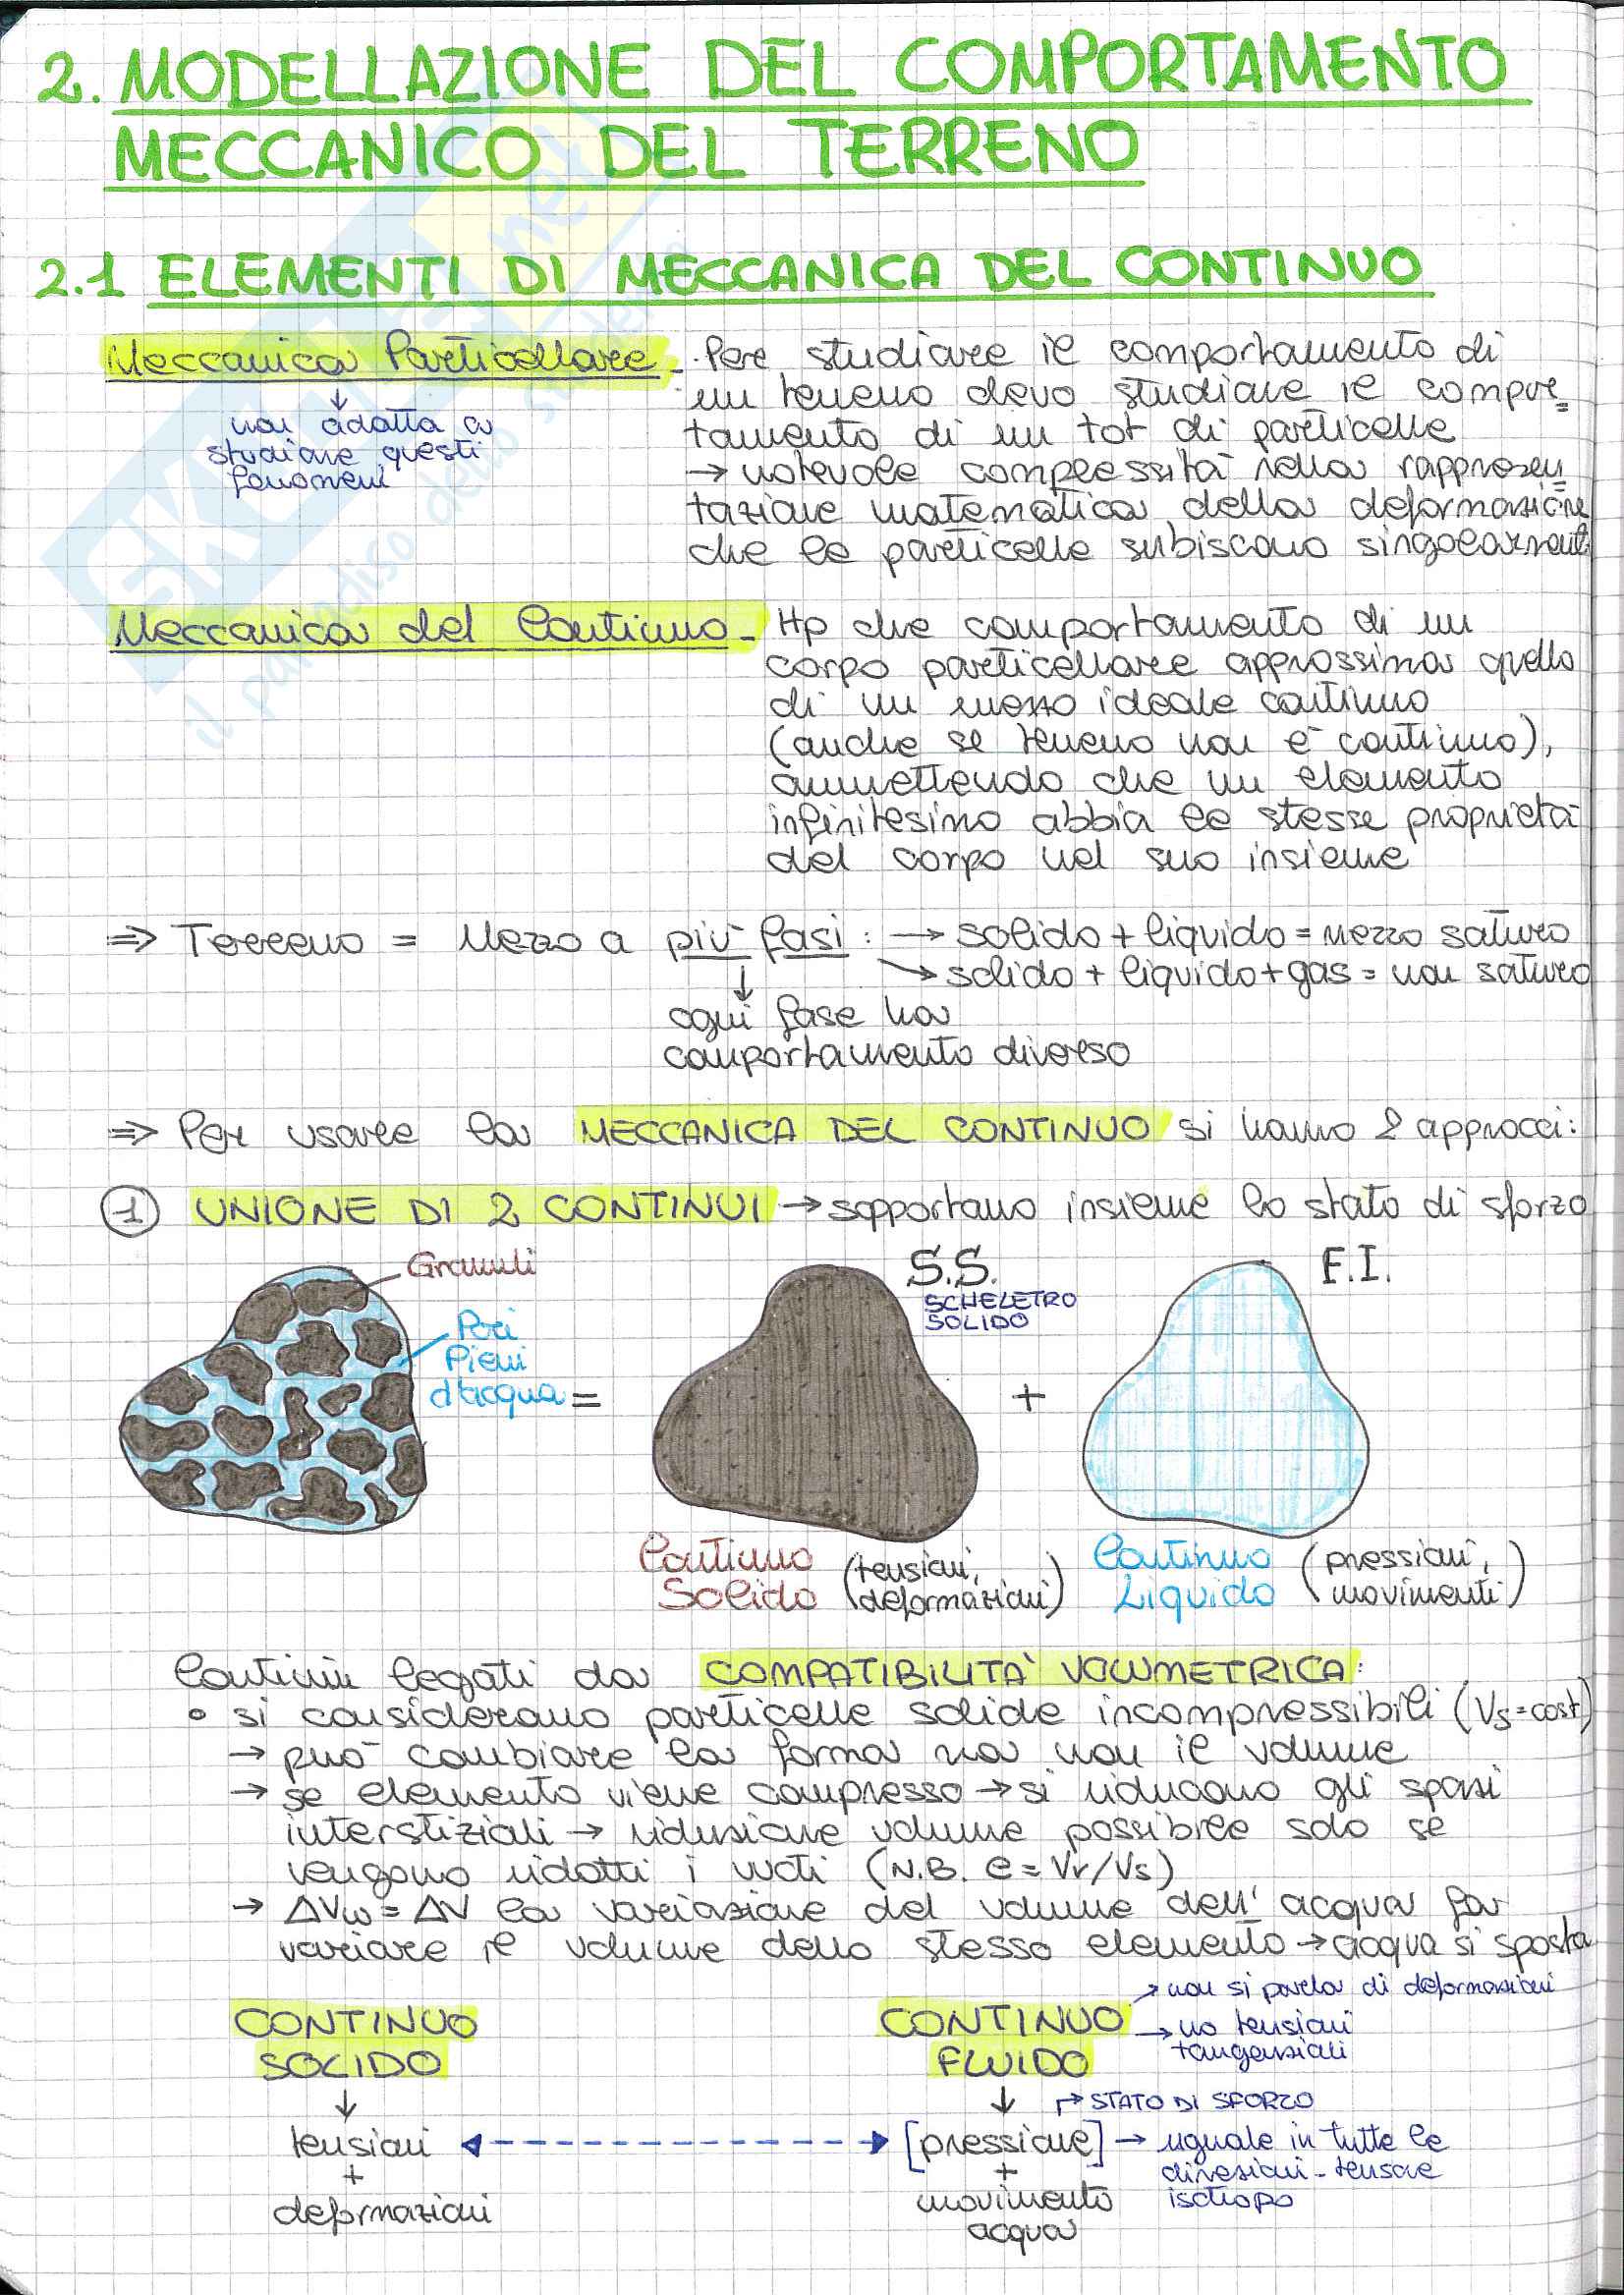 2. MODELLAZIONE DEL COMPORTAMENTO
MECCANICO DEL TERRENO
2.1 ELEMENTI DI MECCANICA DEL CONTINUO
Meccanica Particellare - Per studiare il comportamento di
un terreno devo studiare il compor=
tamento di un tot di particelle
→ notevole complessità nella rappresen=
tazione matematica della deformazione
che le particelle subiscono singolarmente
↓
non adatta a
studiare questi
fenomeni
Meccanica del Continuo - Hp che comportamento di un
corpo particellare approssima quello
di un mezzo ideale continuo
(anche se terreno non è continuo),
ammettendo che un elemento
infinitesimo abbia le stesse proprietà
del corpo nel suo insieme
⇒ Terreno = Mezzo a più fasi: → solido + liquido = mezzo saturo
→ solido + liquido + gas = non saturo
↓
ogni fase ha
comportamento diverso
⇒ Per usare la MECCANICA DEL CONTINUO si hanno 2 approcci:
1 UNIONE DI 2 CONTINUI → sopportano insieme lo stato di sforzo
Granuli
Pori
Pieni
d'acqua
=
S.S.
SCHELETRO
SOLIDO
+
F.I.
Continuo
Solido
(tensioni,
deformazioni)
Continuo
Liquido
(pressioni,
movimenti)
Continui legati da COMPATIBILITÀ VOLUMETRICA:
• si considerano particelle solide incompressibili (Vs = cost)
→ può cambiare la forma ma non il volume
→ se elemento viene compresso → si riducono gli spazi
interstiziali → riduzione volume possibile solo se
vengono ridotti i vuoti (N.B. e = Vv/Vs)
→ ΔVw = ΔV la variazione del volume dell'acqua fa
variare il volume dello stesso elemento → acqua si sposta
CONTINUO
SOLIDO
↓
tensioni
+
deformazioni
CONTINUO
FLUIDO
→ non si parla di deformazioni
→ no tensioni
tangenziali
↓
→ STATO DI SFORZO
[pressione] → uguale in tutte le
direzioni - tensore
isotropo
+
movimento
acqua
SKUOLA.net
il paradiso dello studente